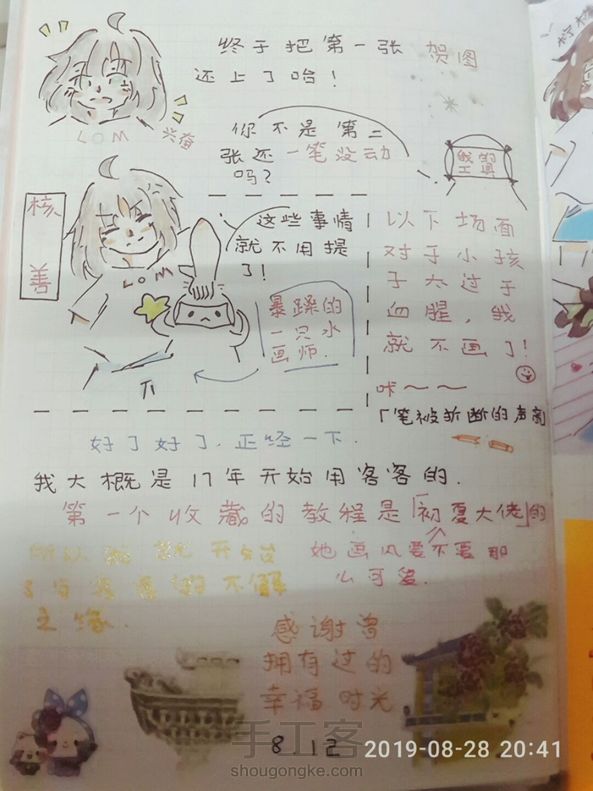 终于把第一张 贺图
还上了哈!
LOM
兴奋
你不是第二
张还一笔没动
吗?
我的
工具
核善
这些事情
就不用提
了!
LOM
暴躁的
一只水
画师.
以下场面
对于小孩
子太过于
血腥,我
就不画了!
咔~~
「笔被折断的声音
好了好了.正经一下.
我大概是17年开始用客客的.
第一个收藏的教程是「初夏大佬」的
她画风要不要那
么可爱.
所以 就 开始
了与 客客的不解
之缘.
感谢曾
拥有过的
幸福时光
8.12
手工客
shougongke.com
2019-08-28 20:41